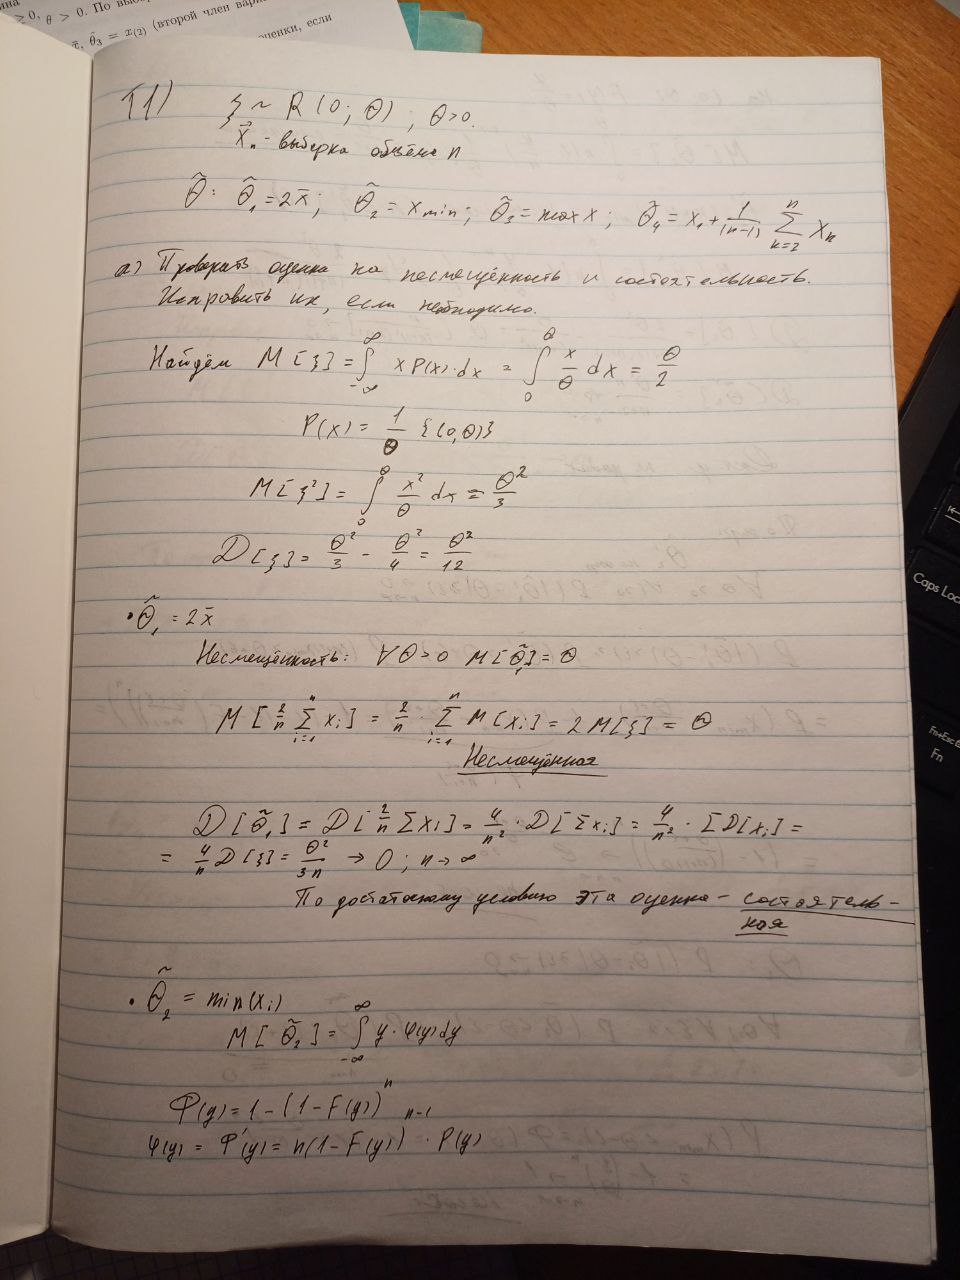 θ > 0. По выбор
x̄, θ̃₃ = x₍₂₎ (второй член вари
оценки, если
T1)
ξ ~ R(0; θ); θ>0.
x⃗ₙ - выборка объёма n
θ̃: θ̃₁ = 2x̄; θ̃₂ = x min; θ̃₃ = max x; θ̃₄ = x₁ + 1/(n-1) ∑ₖ₌₂ⁿ xₙ
а) Проверить оценки на несмещённость и состоятельность.
Исправить их, если необходимо.
Найдём M[ξ] = ∫₋∞^∞ x P(x)·dx = ∫₀^θ x/θ dx = θ/2
P(x) = 1/θ {(0,θ)}
M[ξ²] = ∫₀^θ x²/θ dx = θ²/3
D[ξ] = θ²/3 - θ²/4 = θ²/12
• θ̃₁ = 2x̄
Несмещённость: ∀θ>0 M[θ̃₁] = θ
M[2/n ∑ᵢ₌₁ⁿ xᵢ] = 2/n · ∑ᵢ₌₁ⁿ M[xᵢ] = 2M[ξ] = θ
Несмещённая
D[θ̃₁] = D[2/n ∑xᵢ] = 4/n² · D[∑xᵢ] = 4/n² · ∑D[xᵢ] =
= 4/n D[ξ] = θ²/3n → 0; n→∞
По достаточному условию эта оценка - состоятель-
ная
• θ̃₂ = min(xᵢ)
M[θ̃₂] = ∫₋∞^∞ y·φ(y)dy
Φ(y) = 1 - (1 - F(y))ⁿ
φ(y) = Φ'(y) = n(1 - F(y))ⁿ⁻¹ · P(y)
Caps Loc
Fn+Esc
Fn